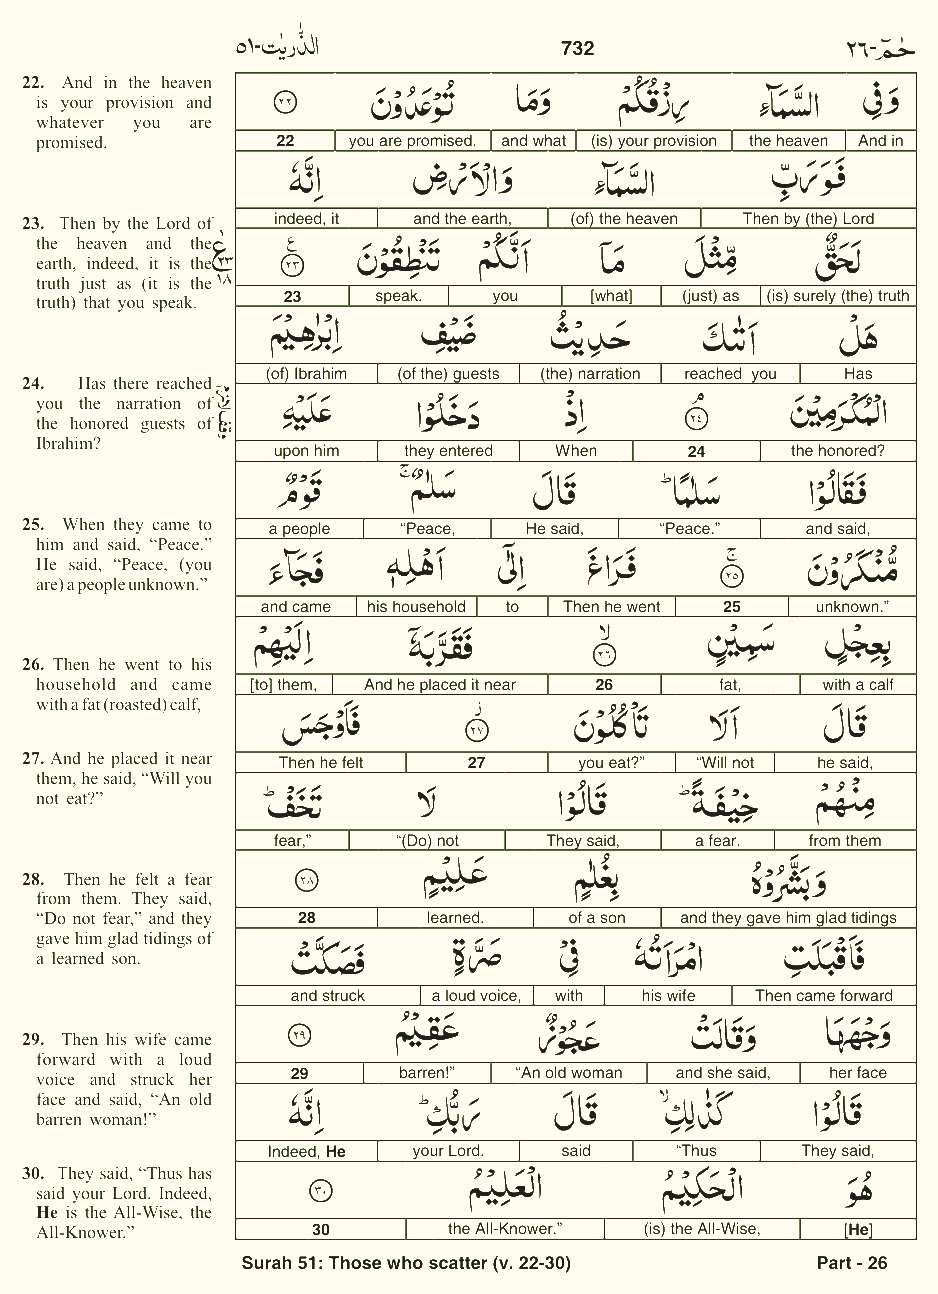 الذّٰرِيٰت-٥١ 732 حٰمٓ-٢٦
22. And in the heaven
is your provision and
whatever you are
promised.
23. Then by the Lord of
the heaven and the
earth, indeed, it is the
truth just as (it is the
truth) that you speak.
24. Has there reached
you the narration of
the honored guests of
Ibrahim?
25. When they came to
him and said, “Peace.”
He said, “Peace, (you
are) a people unknown.”
26. Then he went to his
household and came
with a fat (roasted) calf,
27. And he placed it near
them, he said, “Will you
not eat?”
28. Then he felt a fear
from them. They said,
“Do not fear,” and they
gave him glad tidings of
a learned son.
29. Then his wife came
forward with a loud
voice and struck her
face and said, “An old
barren woman!”
30. They said, “Thus has
said your Lord. Indeed,
He is the All-Wise, the
All-Knower.”
ع
٢٣
١٨
وَفِي السَّمَآءِ رِزْقُكُمْ وَمَا تُوْعَدُوْنَ ٢٢
And in the heaven (is) your provision and what you are promised. 22
فَوَرَبِّ السَّمَآءِ وَالْاَرْضِ اِنَّهٗ
Then by (the) Lord (of) the heaven and the earth, indeed, it
لَحَقٌّ مِّثْلَ مَآ اَنَّكُمْ تَنْطِقُوْنَ ٢٣ ع
(is) surely (the) truth (just) as [what] you speak. 23
هَلْ اَتٰىكَ حَدِيْثُ ضَيْفِ اِبْرٰهِيْمَ
Has reached you (the) narration (of the) guests (of) Ibrahim
الْمُكْرَمِيْنَ ٢٤ۘ اِذْ دَخَلُوْا عَلَيْهِ
the honored? 24 When they entered upon him
فَقَالُوْا سَلٰمًا ؕ قَالَ سَلٰمٌ ۚ قَوْمٌ
and said, “Peace.” He said, “Peace, a people
مُّنْكَرُوْنَ ٢٥ۚ فَرَاغَ اِلٰٓى اَهْلِهٖ فَجَآءَ
unknown.” 25 Then he went to his household and came
بِعِجْلٍ سَمِيْنٍ ٢٦ۙ فَقَرَّبَهٗٓ اِلَيْهِمْ
with a calf fat, 26 And he placed it near [to] them,
قَالَ اَلَا تَاْكُلُوْنَ ٢٧ز فَاَوْجَسَ
he said, “Will not you eat?” 27 Then he felt
مِنْهُمْ خِيْفَةً ؕ قَالُوْا لَا تَخَفْ ؕ
from them a fear. They said, “(Do) not fear,”
وَبَشَّرُوْهُ بِغُلٰمٍ عَلِيْمٍ ٢٨
and they gave him glad tidings of a son learned. 28
فَاَقْبَلَتِ امْرَاَتُهٗ فِيْ صَرَّةٍ فَصَكَّتْ
Then came forward his wife with a loud voice, and struck
وَجْهَهَا وَقَالَتْ عَجُوْزٌ عَقِيْمٌ ٢٩
her face and she said, “An old woman barren!” 29
قَالُوْا كَذٰلِكِ ۙ قَالَ رَبُّكِ ؕ اِنَّهٗ
They said, “Thus said your Lord. Indeed, He
هُوَ الْحَكِيْمُ الْعَلِيْمُ ٣٠
[He] (is) the All-Wise, the All-Knower.” 30
Surah 51: Those who scatter (v. 22-30) Part - 26